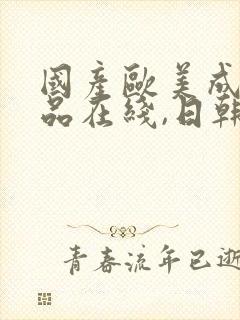 國產歐美成
品在綫,日韓
青春流年已逝